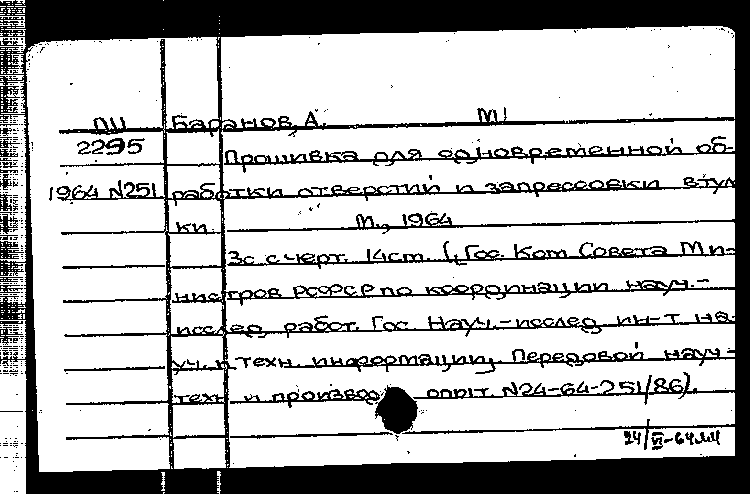 ПИ Баранов, А. М!
2295 Прошивка для одновременной об-
1964 N251 работки отверстий и запрессовки втул
ки. М., 1964
3с с черт. 14см. (Гос. Ком Совета Ми-
нистров РСФСР по координации науч.-
исслед. работ. Гос. Науч.-исслед. ин-т на
уч. и техн. информации. Передовой науч-
техн. и производ опыт. N24-64-251/86).
24/VI-64